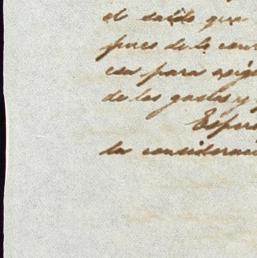 el saldo que
pues de la con
cia para exigi
de los gastos y
Espero
la consideraci